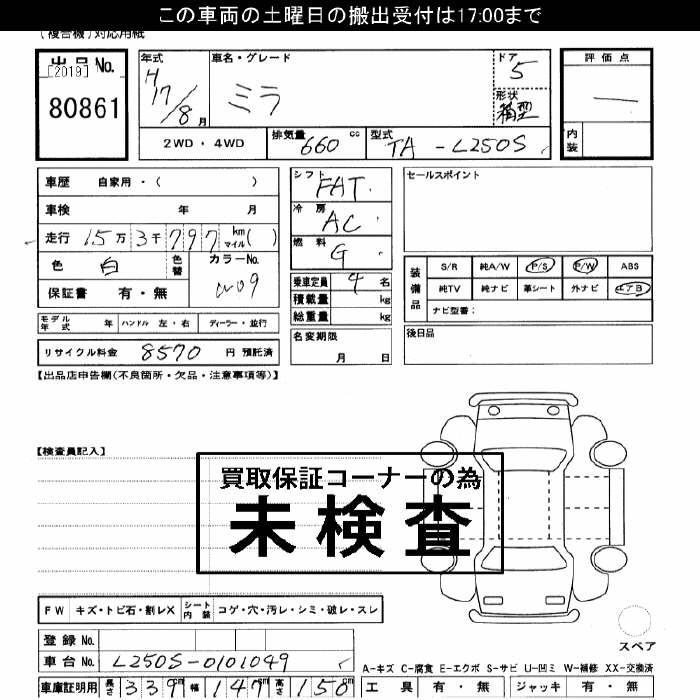 この車両の土曜日の搬出受付は17:00まで
(複合機)対応用紙
出品No.
[2019]
80861
年式 H17/8月
車名・グレード
ミラ
ドア 5
形状 箱型
評価点
―
内装
2WD・4WD 排気量 660 cc 型式 TA-L250S
車歴 自家用・( )
車検 年 月
走行 15万3千797 km マイル( )
色 白 色替 カラーNo. W09
保証書 有・無
シフト FAT
冷房 AC
燃料 G
乗車定員 4名
積載量 kg
総重量 kg
セールスポイント
装備品 S/R 純A/W P/S P/W ABS
純TV 純ナビ 革シート 外ナビ エアB
ナビ型番:
モデル年式 年 ハンドル 左・右 ディーラー・並行
名変期限 月 日
後日品
リサイクル料金 8570 円 預託済
【出品店申告欄(不良箇所・欠品・注意事項等)】
【検査員記入】
買取保証コーナーの為
未検査
FW キズ・トビ石・割レX シート内装 コゲ・穴・汚レ・シミ・破レ・スレ
登録No.
車台No. L250S-0101049
スペア
A-キズ C-腐食 E-エクボ S-サビ U-凹ミ W-補修 XX-交換済
車庫証明用 長さ 339cm 幅 147cm 高さ 150cm
工具 有・無 ジャッキ 有・無